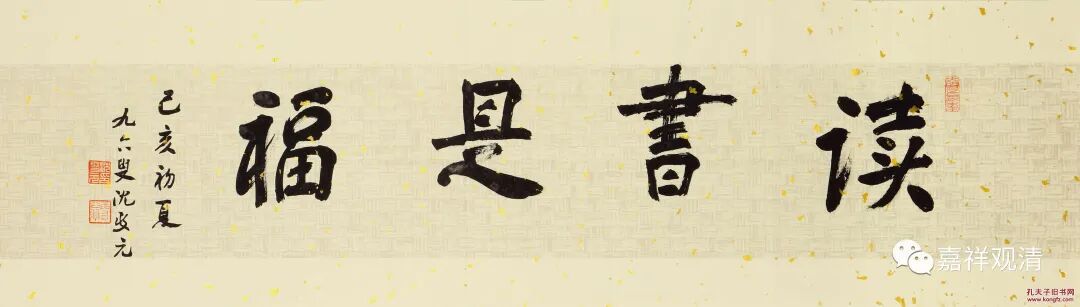 读書是福
己亥初夏
九六叟沈燮元
嘉祥观清
孔夫子旧书网
www.kongfz.com